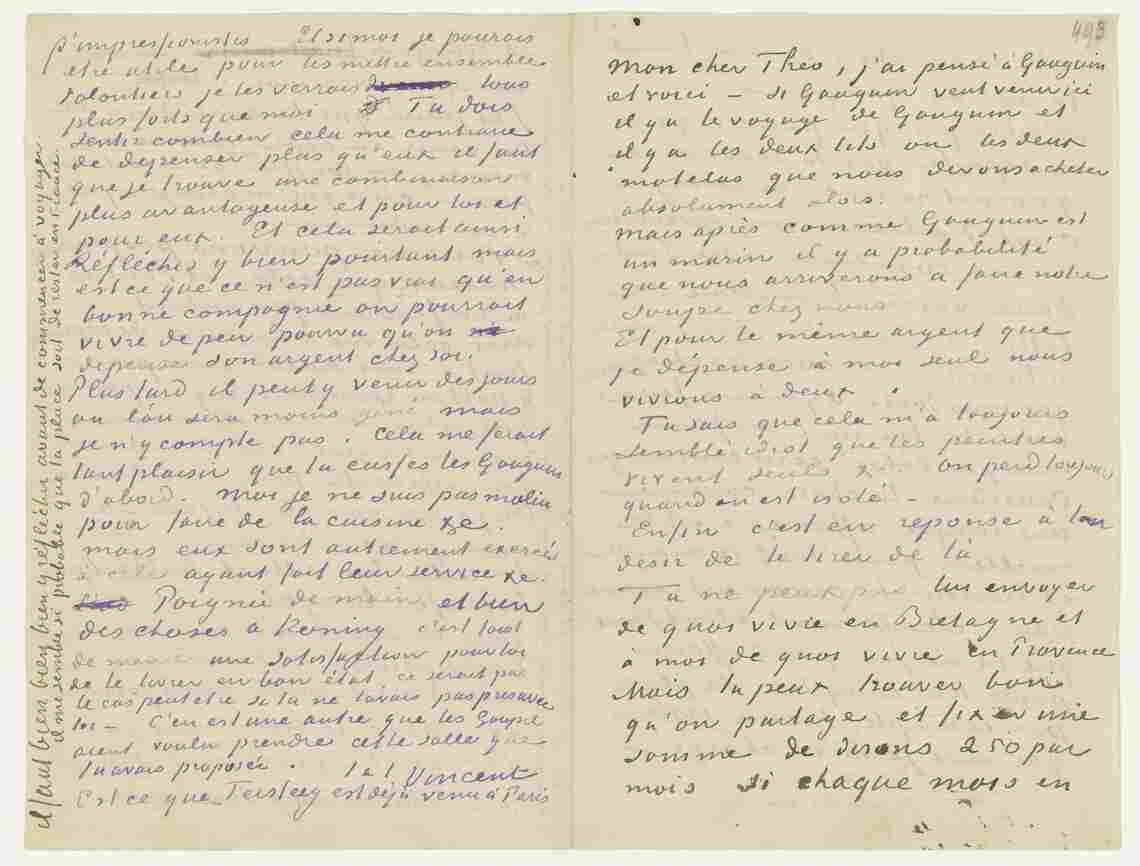 il faut bien bien bien y réfléchir avant de commencer à voyager.
il me semble si probable que ta place soit de rester en France.
d'impressionistes Et si moi je pourais
etre utile pour les mettre ensemble
Volontiers je les verrais tous
plus forts que moi Tu dois
sentir combien cela me contrarie
de depenser plus qu'eux il faut
que je trouve une combinaison
plus avantageuse et pour toi et
pour eux. Et cela serait ainsi.
Réfléchis y bien pourtant mais
est ce que ce n'est pas vrai qu'en
bonne compagnie on pourrait
vivre de peu pourvu qu'on
depense son argent chez soi.
Plus tard il peut y venir des jours
ou l'on sera moins gêné mais
je n'y compte pas. Cela me ferait
tant plaisir que tu eusses les Gauguin
d'abord. Moi je ne suis pas malin
pour faire de la cuisine &c.
mais eux sont autrement exercés
à cela ayant fait leur service &c.
Poignée de main et bien
des choses à Koning c'est tout
de meme une satisfaction pour toi
de le livrer en bon état. ce serait pas
le cas peutetre si tu ne l'avais pas pris avec
toi – C'en est une autre que les Goupil
aient voulu prendre cette salle que
tu avais proposée. t. à t. Vincent
Est ce que Tersteeg est déjà venu à Paris
493
Mon cher Theo, j'ai pensé à Gauguin
et voici – si Gauguin veut venir ici
il y a le voyage de Gauguin et
il y a les deux lits ou les deux
matelas que nous devons acheter
absolument alors.
Mais après comme Gauguin est
un marin il y a probabilité
que nous arriverons à faire notre
soupe chez nous
Et pour le même argent que
je dépense à moi seul nous
vivrions à deux.
Tu sais que cela m'a toujours
semblé idiot que les peintres
vivent seuls &c. On perd toujours
quand on est isolé –
Enfin c'est en reponse à ton
desir de le tirer de là
Tu ne peux pas lui envoyer
de quoi vivre en Bretagne et
à moi de quoi vivre en Provence
Mais tu peux trouver bon
qu'on partage et fixer une
somme de disons 250 par
mois si chaque mois en